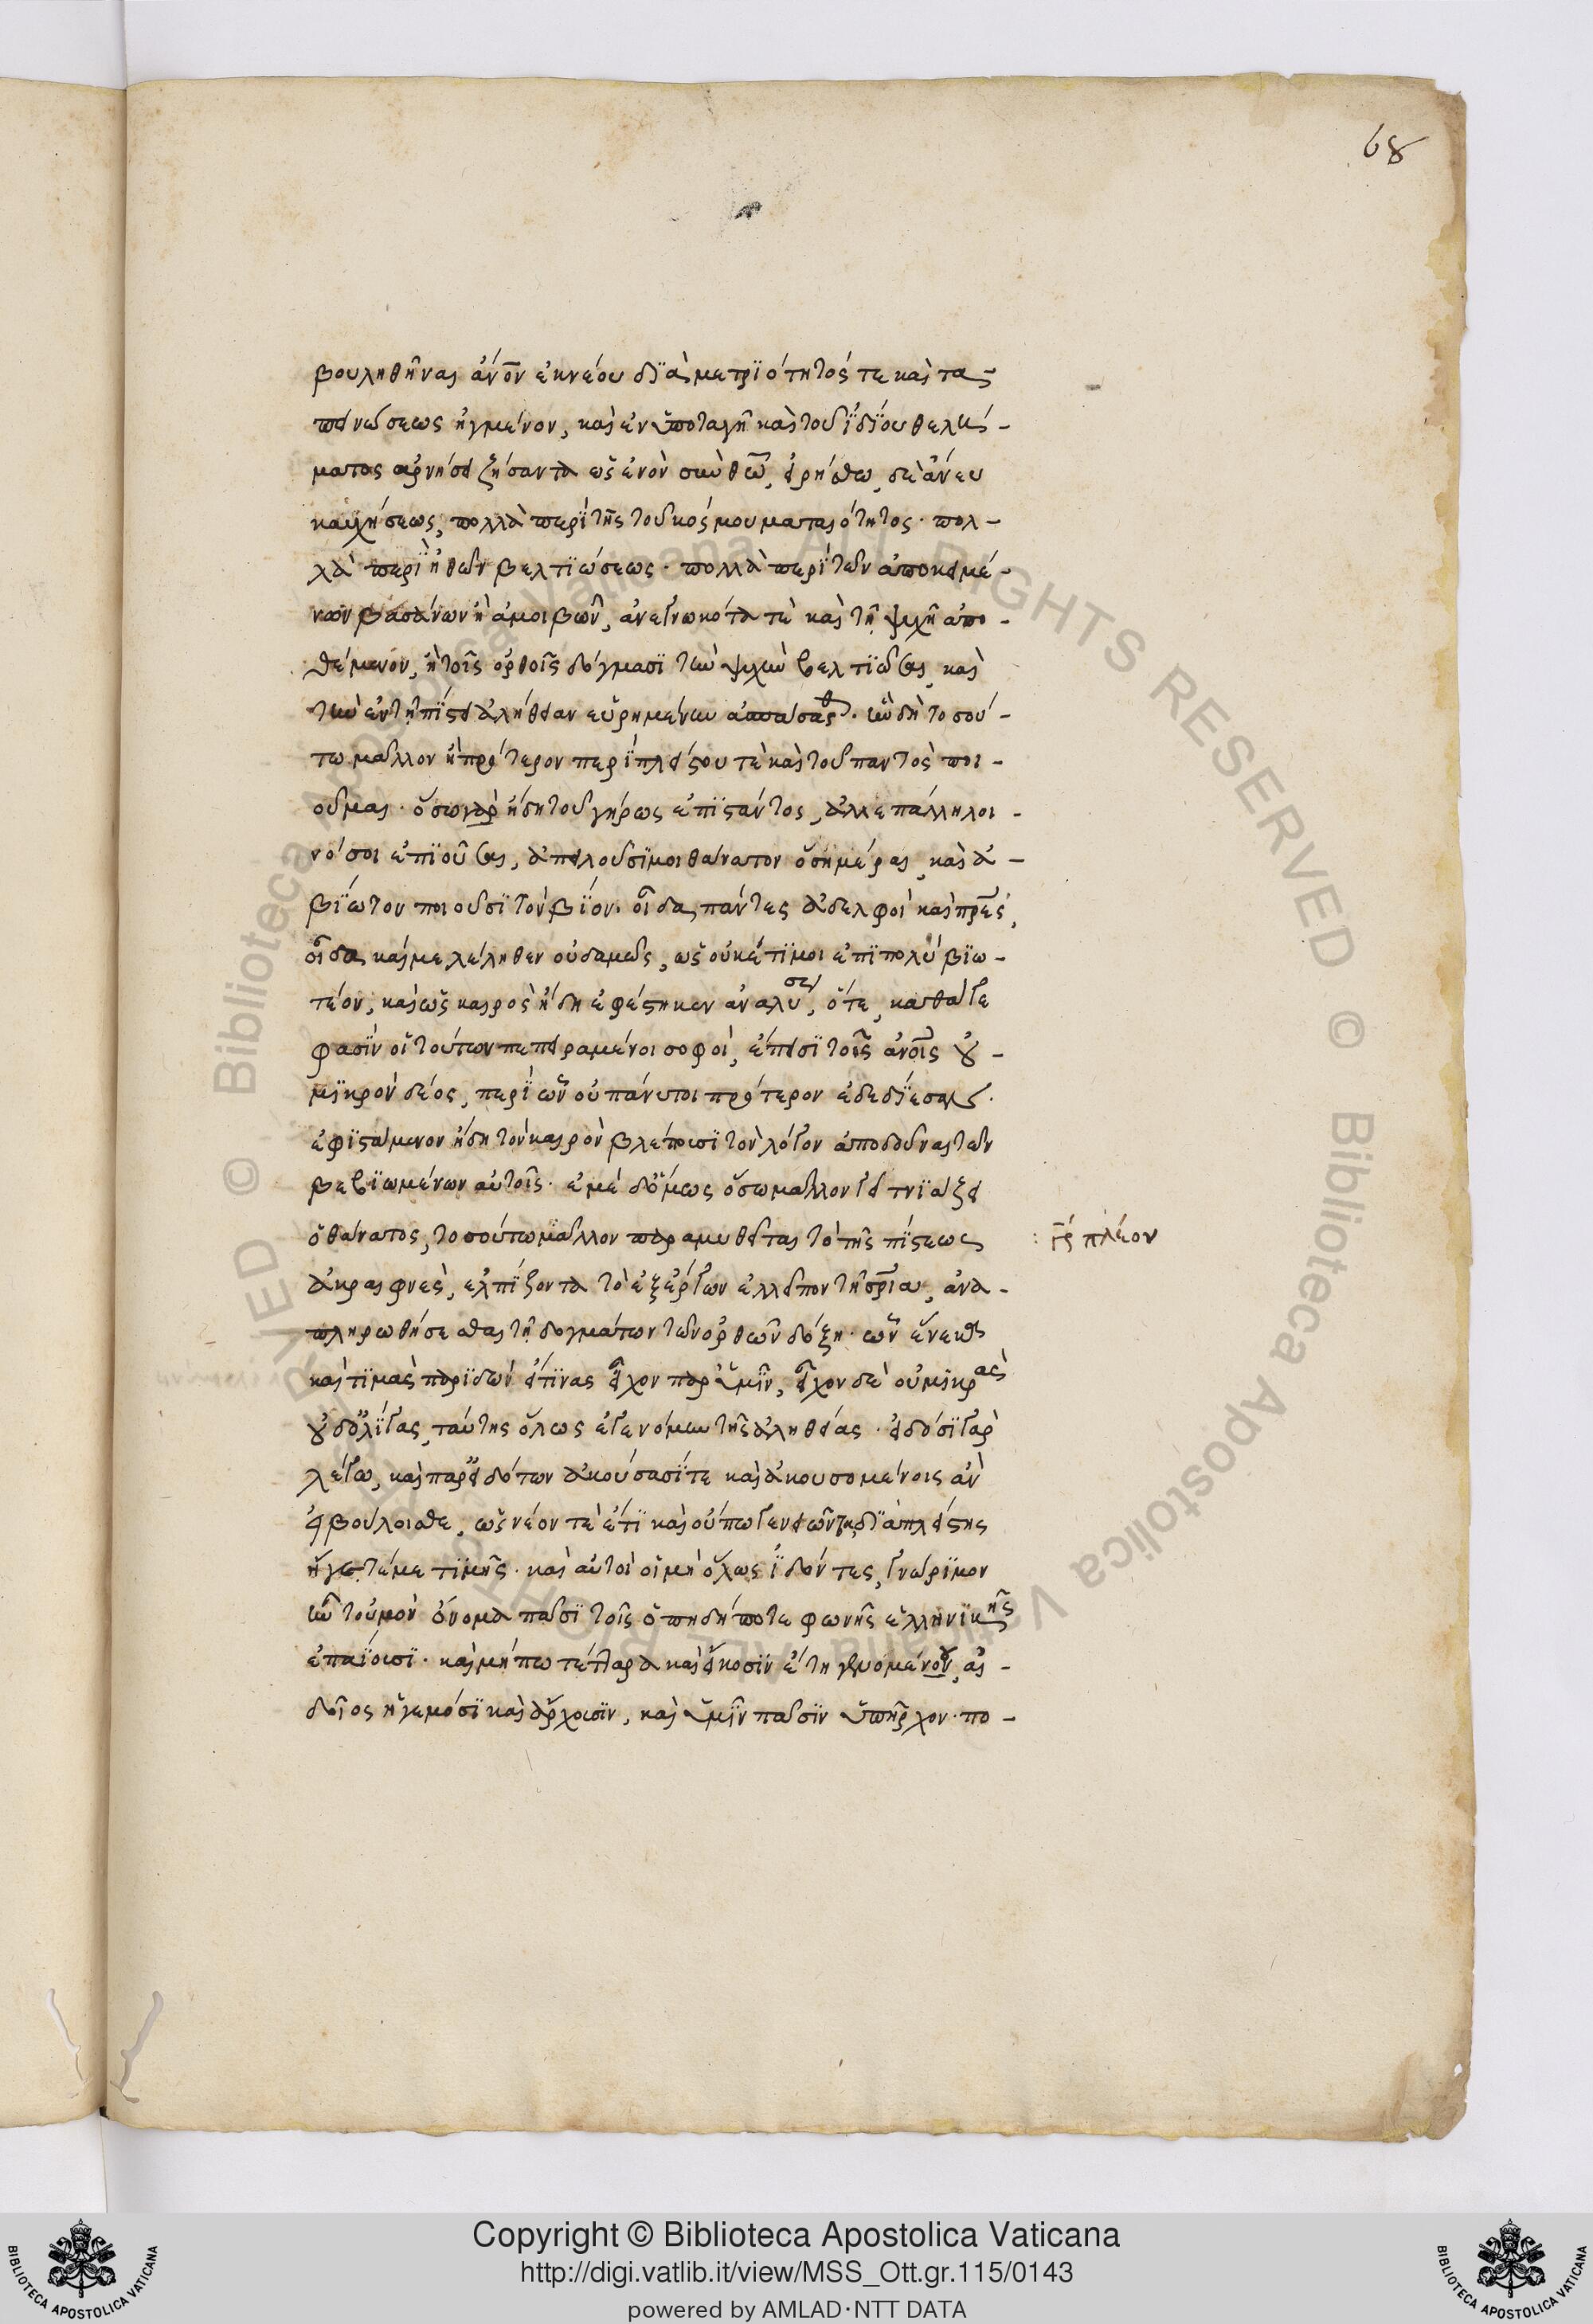 68
βουληθῆναι ἄνον ἐκ νέου διὰ μετριότητός τε καὶ τα-
πεινώσεως ἠγμένον, καὶ ἐν ὑποταγῇ καὶ τοῦ ἰδίου θελή-
ματος ἀρνήσει ζήσαντα ὡς ἐνὸν σὺν θῶ, εἰρήσθω δὲ ἄνευ
καυχήσεως, πολλὰ περὶ τῆς τοῦ κόσμου ματαιότητος· πολ-
λὰ περὶ ἠθῶν βελτιώσεως· πολλὰ περὶ τῶν ἀποκειμέ-
νων βασάνων ἢ ἀμοιβῶν, ἀνεγνωκότα τὲ καὶ τῇ ψυχῇ ἀπο-
θέμενον, ἢ τοῖς ὀρθοῖς δόγμασι τὴν ψυχὴν βελτιῶσαι καὶ
τὴν ἐν τῇ πίστει ἀλήθειαν εὑρημένην ἀσπάσασθαι. ὃ δὴ τοσού-
τω μᾶλλον ἢ πρότερον περὶ πλείστου τὲ καὶ τοῦ παντὸς ποι-
οῦμαι· ὅσω γὰρ ἤδη τοῦ γήρως ἐπιστάντος, ἀλλεπάλληλοι
νόσοι ἐπιοῦσαι, ἀπειλοῦσί μοι θάνατον ὁσημέραι, καὶ ἀ-
βίωτον ποιοῦσι τὸν βίον. οἶδα πάντες ἀδελφοὶ καὶ πρες,
οἶδα καί με λέληθεν οὐδαμῶς, ὡς οὐκέτι μοι ἐπιπολὺ βιω-
τέον, καὶ ὡς καιρὸς ἤδη ἐφέστηκεν ἀναλύσει, ὅτε, καθά γε
φασὶν οἱ τούτων πεπειραμένοι σοφοὶ, ἔπεισι τοῖς ἀνοις οὐ
μικρὸν δέος, περὶ ὧν οὐ πάνυ τοι πρότερον ἐδεδίεσαν.
ἐφιστάμενον ἤδη τὸν καιρὸν βλέπουσι τὸν λόγον ἀποδοῦναι τῶν
βεβιωμένων αὐτοῖς. ἐμὲ δ' ὅμως ὅσω μᾶλλον γειτνιάζει
ὁ θάνατος, τοσούτω μᾶλλον παραμυθεῖται τὸ τῆς πίστεως
: γρ πλέον
ἀκραιφνὲς, ἐλπίζοντα τὸ ἐξ ἔργων ἐλλεῖπον τῇ σρία, ἀνα-
πληρωθήσεσθαι τῇ δογμάτων τῶν ὀρθῶν δόξῃ. ὧν ἕνεκα
καὶ τιμὰς παριδὼν εἴ τινας εἶχον παρ' ὑμῖν, εἶχον δὲ οὐ μικρὰς
οὐδ' ὀλίγας, ταύτης ὅλως ἐγενόμην τῆς ἀληθείας. εἰδόσι γὰρ
λέγω, καὶ παρ' εἰδότων ἀκούσασί τε καὶ ἀκουσομένοις ἂν
εἰ βούλοισθε, ὡς νέον τὲ ἔτι καὶ οὔπω γενειῶντα, διὰ πλείστης
ἤγετέ με τιμῆς. καὶ αὐτοὶ οἱ μὴ ὅλως ἰδόντες, γνώριμον
ἦν τοὐμὸν ὄνομα πᾶσι τοῖς ὁπηδήποτε φωνῆς ἑλληνικῆς
ἐπαΐουσι. καὶ μήπω τέτταρα καὶ εἴκοσιν ἔτη γενομένου, αἰ-
δοῖος ἡγεμόσι καὶ ἄρχουσιν, καὶ ὑμῖν πᾶσιν ὑπῆρχον. πο-
Copyright © Biblioteca Apostolica Vaticana
http://digi.vatlib.it/view/MSS_Ott.gr.115/0143
powered by AMLAD·NTT DATA